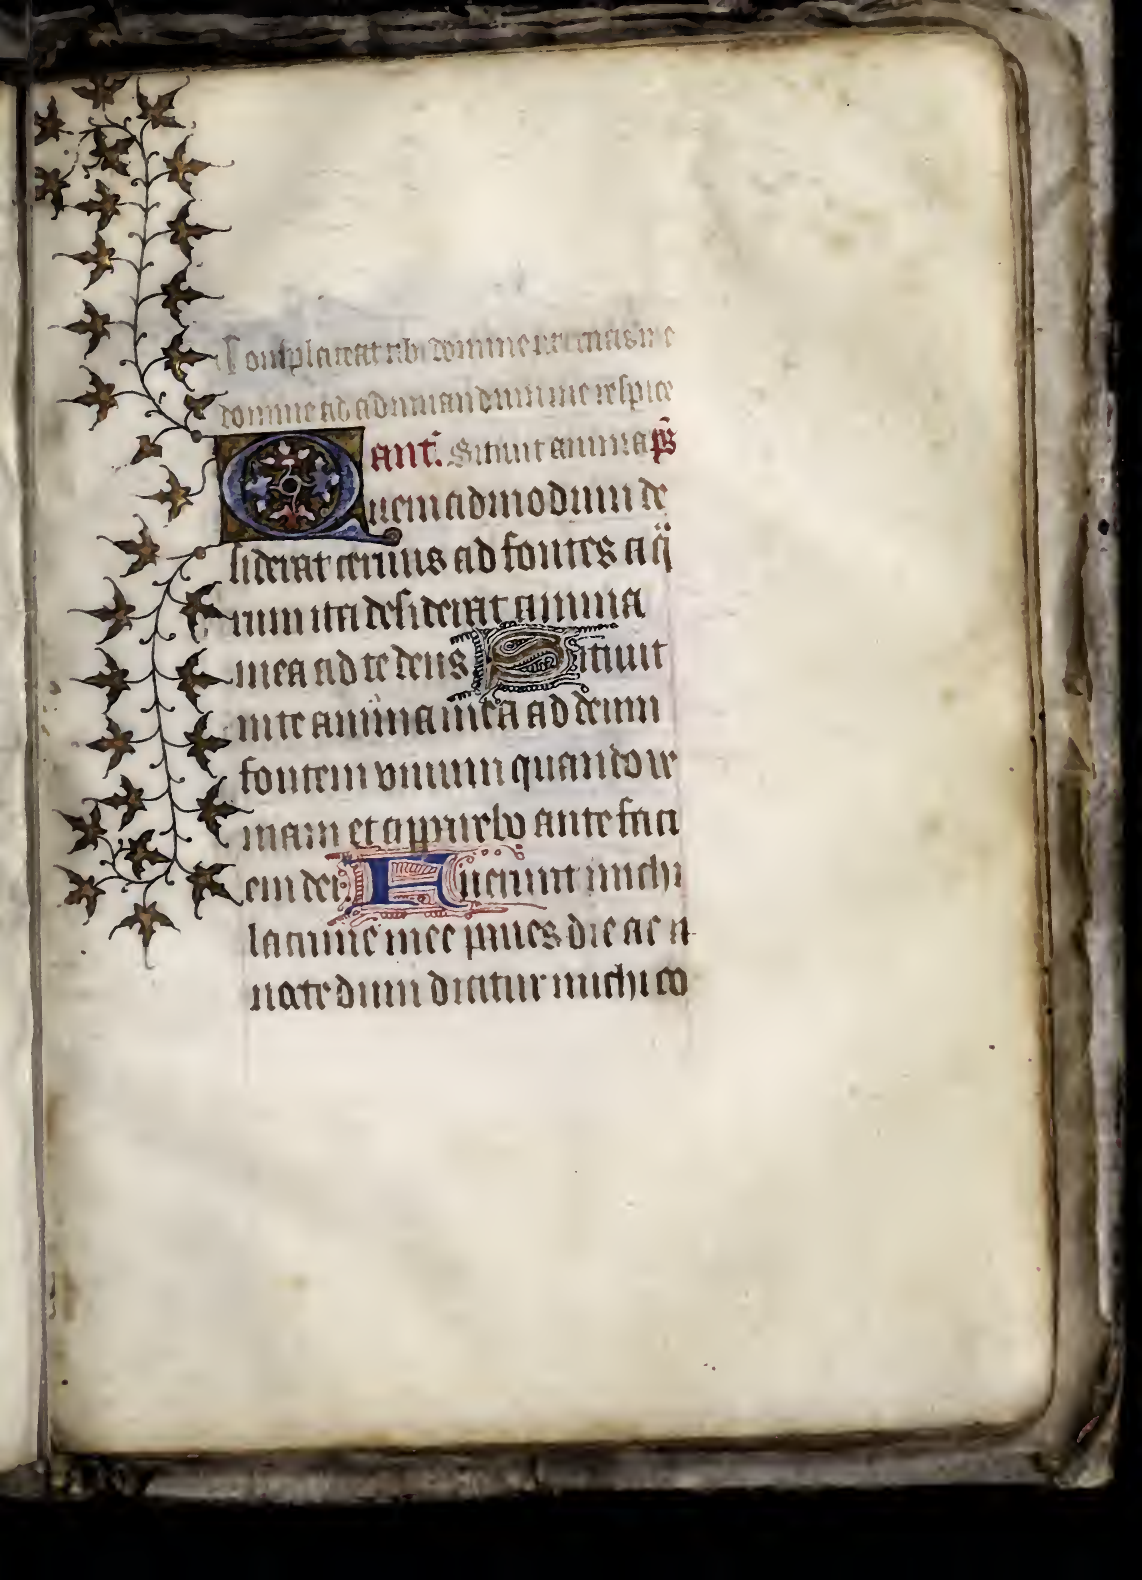 Conplaceat tibi domine ut eruas me
domine ad adiuuandum me respice
ant. Sitiuit anima ps̄
Quemadmodum de
siderat ceruus ad fontes aq̄
rum ita desiderat anima
mea ad te deus Sitiuit
in te anima mea ad deum
fontem viuum quando ve
niam et apparebo ante faci
em dei Fuerunt michi
lacrime mee panes die ac n
nocte dum dicitur michi co